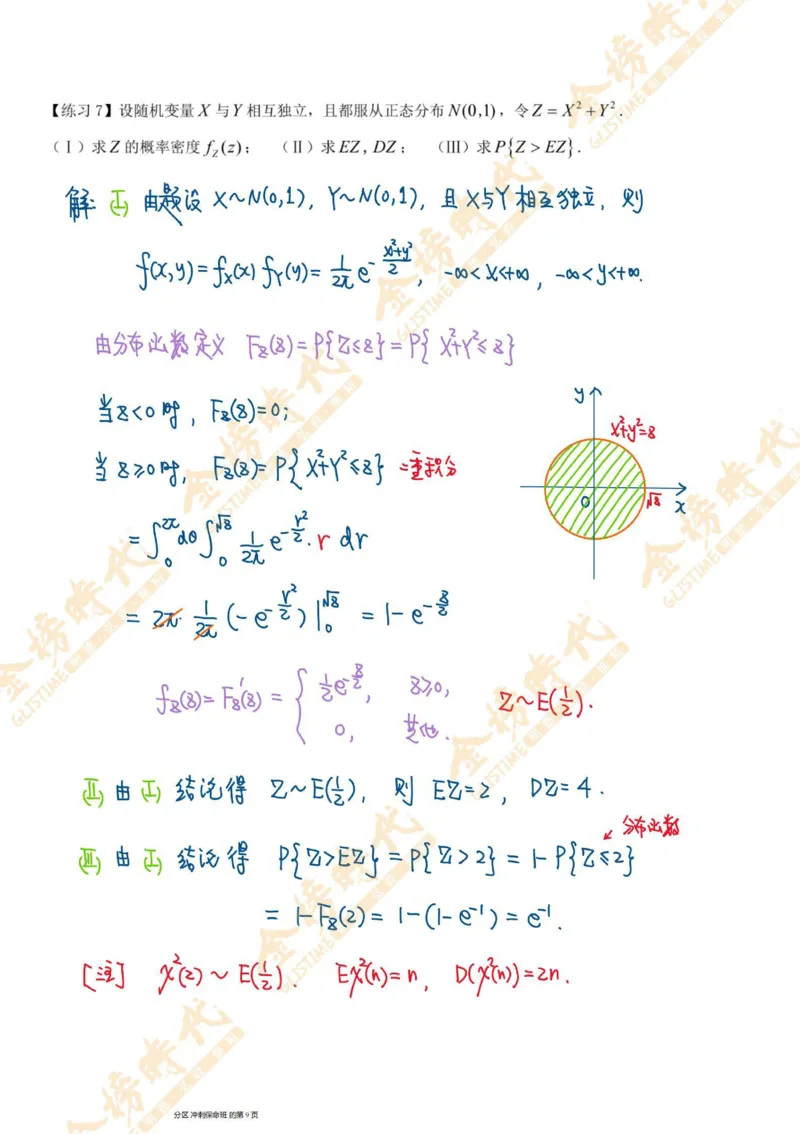 【练习7】设随机变量 X 与 Y 相互独立，且都服从正态分布 N(0,1)，令 Z = X² + Y².
（Ⅰ）求 Z 的概率密度 f_Z(z)； （Ⅱ）求 EZ, DZ； （Ⅲ）求 P{Z > EZ}.
解: (Ⅰ) 由题设 X~N(0,1), Y~N(0,1), 且 X与Y 相互独立, 则
f(x,y) = f_X(x) f_Y(y) = 1/(2π) e^(-(x²+y²)/2), -∞<x<+∞, -∞<y<+∞.
由分布函数定义 F_Z(z) = P{Z≤z} = P{X²+Y²≤z}
当 z<0 时, F_Z(z)=0;
当 z≥0 时, F_Z(z) = P{X²+Y²≤z} 二重积分
= ∫_0^(2π) dθ ∫_0^(√z) 1/(2π) e^(-r²/2)·r dr
= 2π·1/(2π) (-e^(-r²/2)) |_0^(√z) = 1-e^(-z/2)
y
x²+y²=z
0
√z
x
f_Z(z) = F_Z'(z) = { 1/2 e^(-z/2), z≥0,
0, 其他.
Z~E(1/2).
(Ⅱ) 由 (Ⅰ) 结论得 Z~E(1/2), 则 EZ=2, DZ=4.
分布函数
(Ⅲ) 由 (Ⅰ) 结论得 P{Z>EZ} = P{Z>2} = 1-P{Z≤2}
= 1-F_Z(2) = 1-(1-e^(-1)) = e^(-1).
[注] χ²(2) ~ E(1/2). Eχ²(n)=n, D(χ²(n))=2n.
分区 冲刺保命班 的第 9 页
金榜時代
GLISTIME